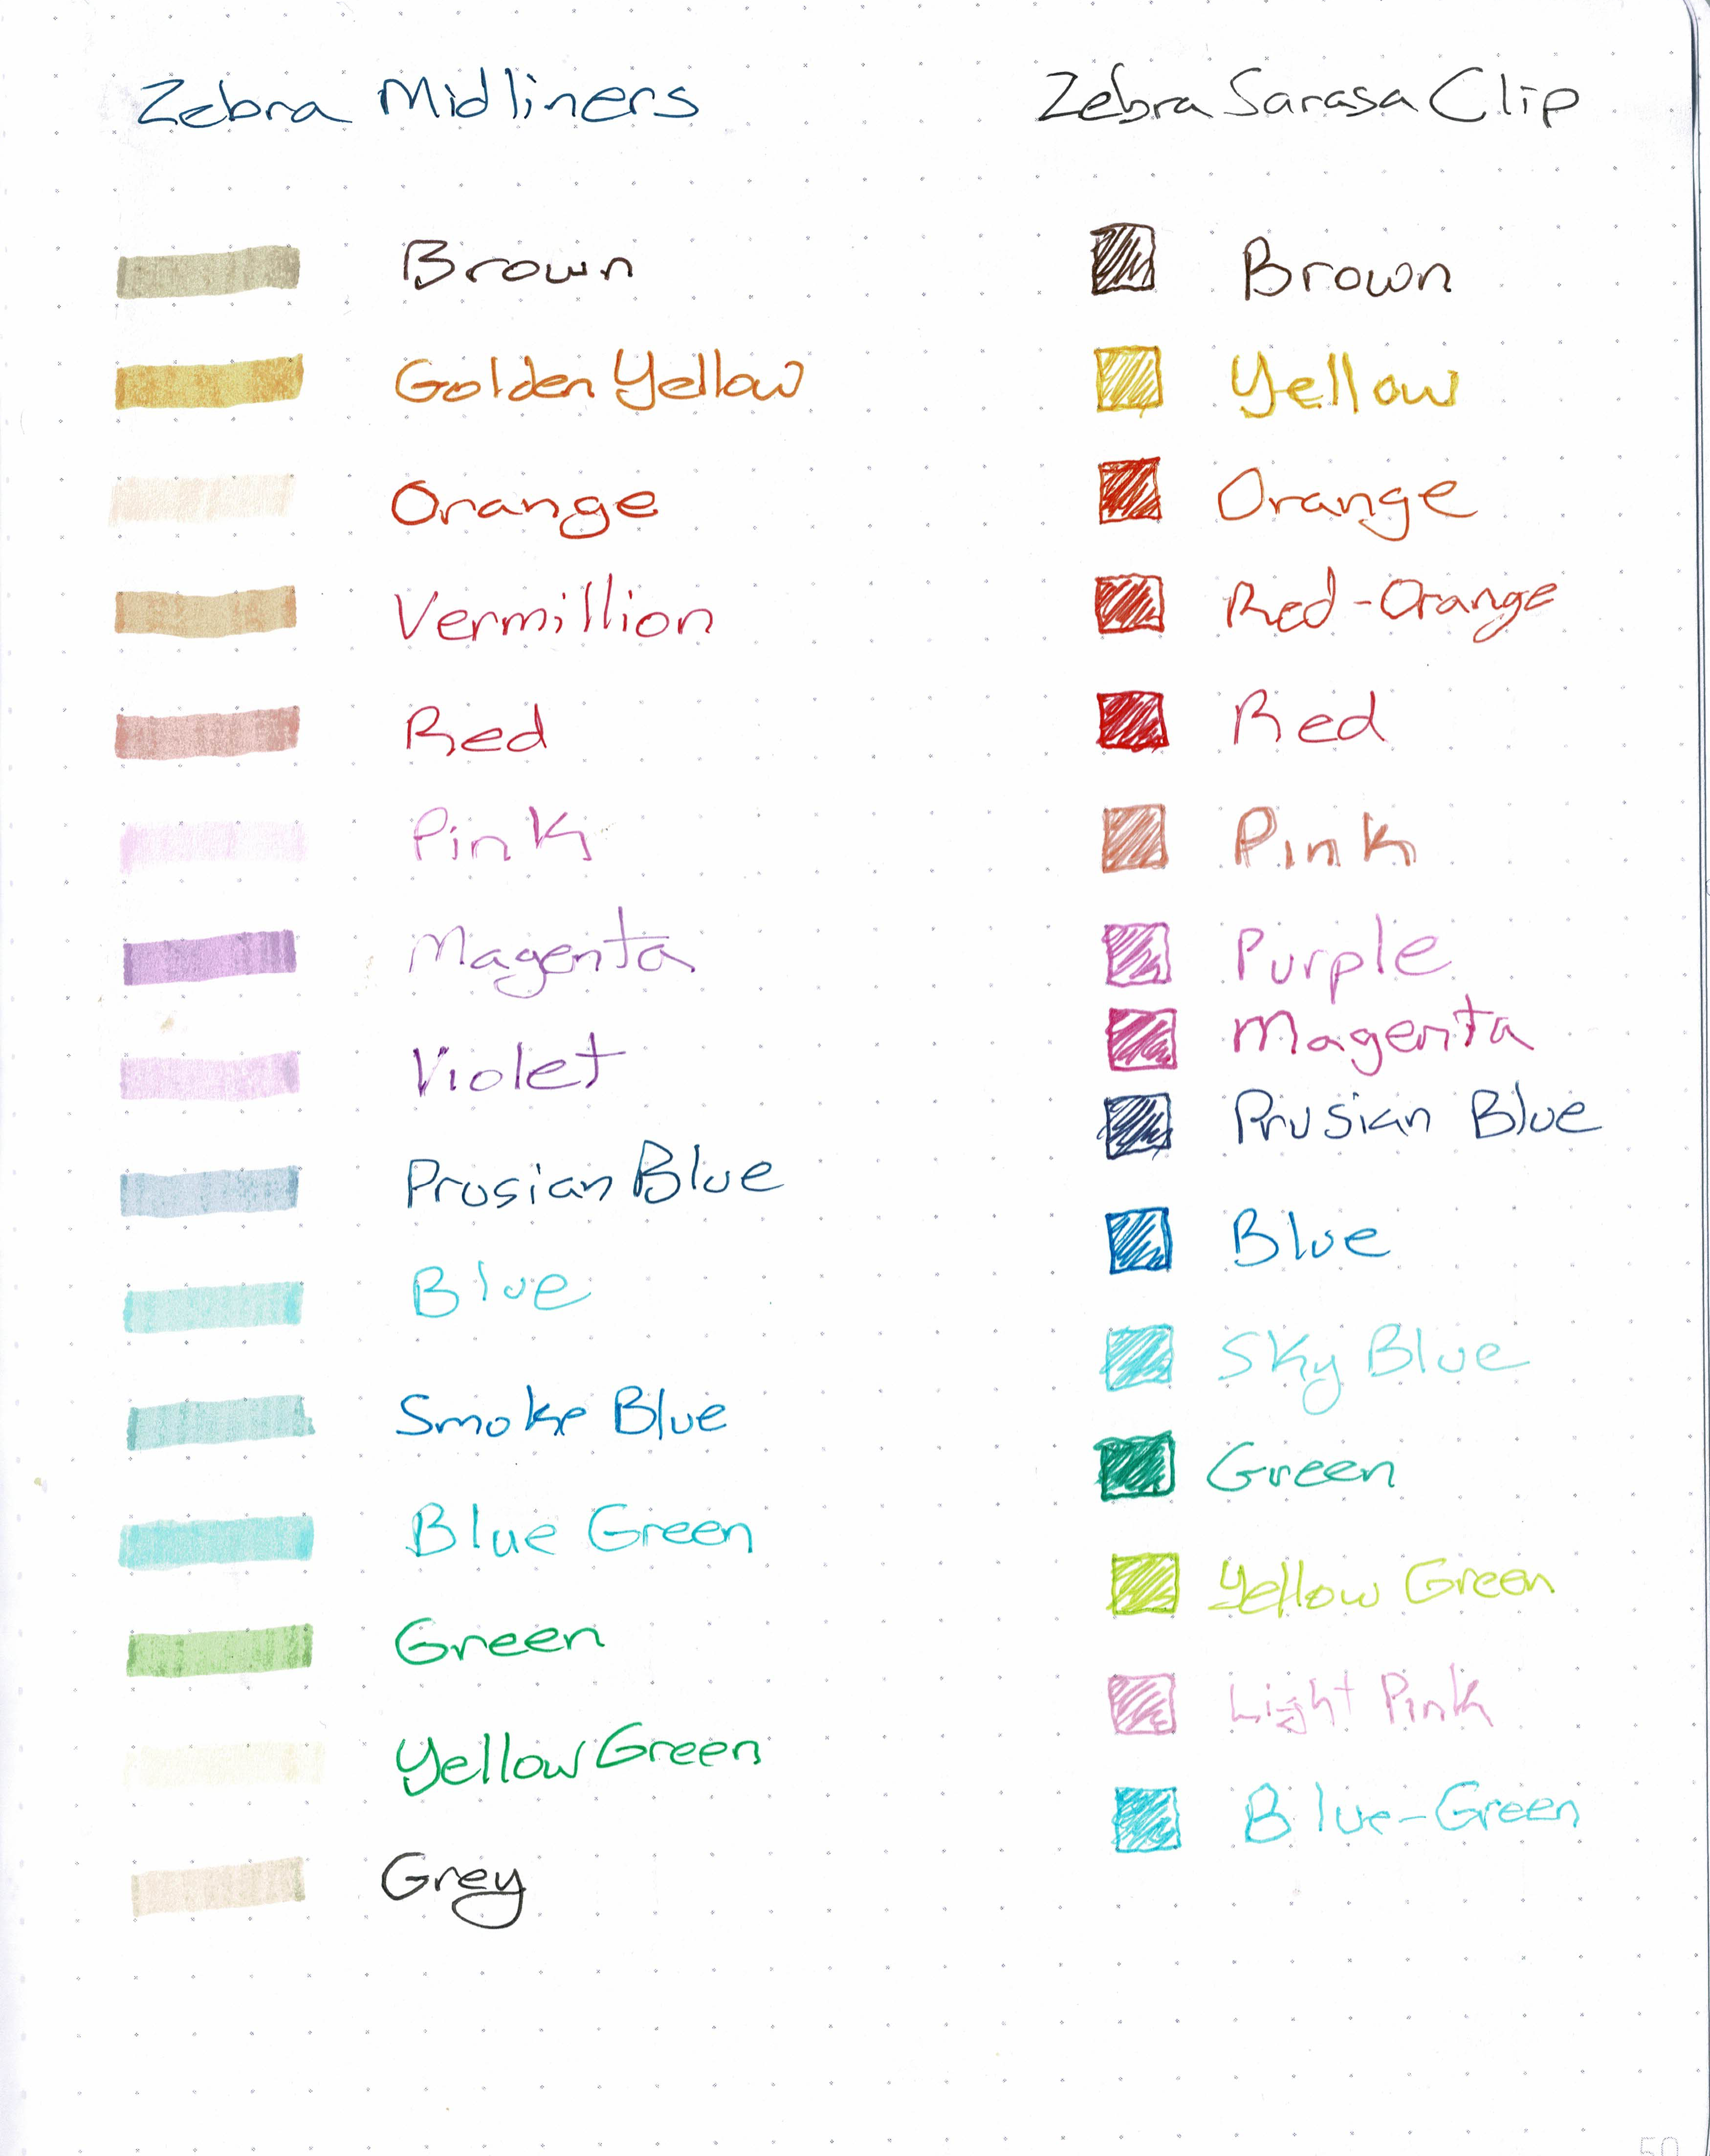 Zebra Midliners
Brown
Golden Yellow
Orange
Vermillion
Red
Pink
Magenta
Violet
Prusian Blue
Blue
Smoke Blue
Blue Green
Green
Yellow Green
Grey
Zebra Sarasa Clip
Brown
Yellow
Orange
Red-Orange
Red
Pink
Purple
Magenta
Prusian Blue
Blue
Sky Blue
Green
Yellow Green
Light Pink
Blue-Green
50